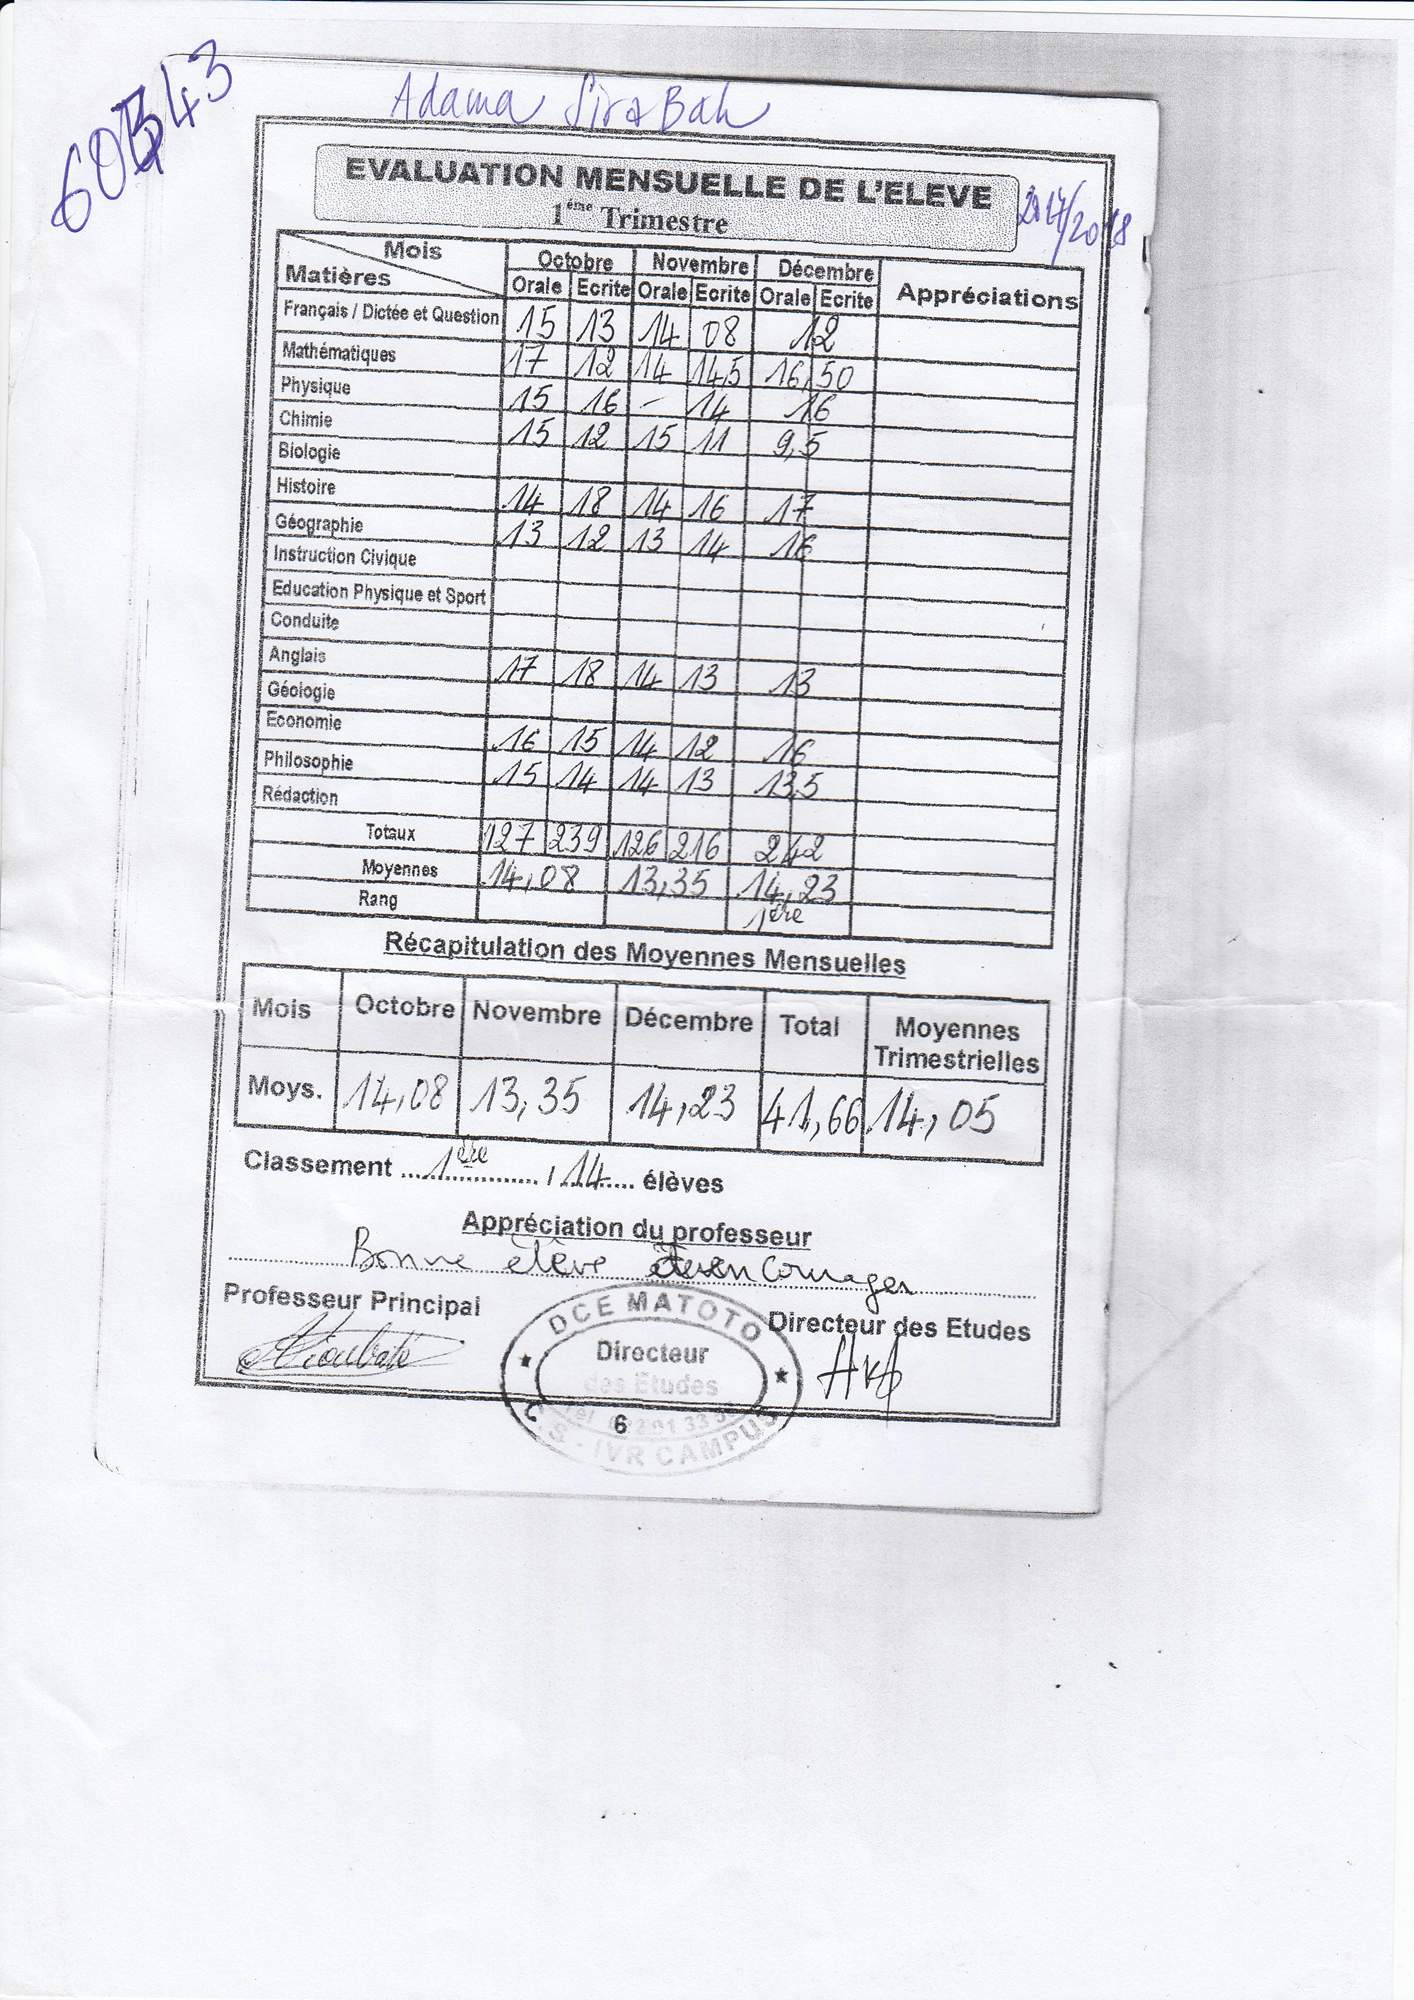 Adama Sira Bah
EVALUATION MENSUELLE DE L'ELEVE
1ème Trimestre
2017/2018
Mois
Matières
Octobre Novembre Décembre Appréciations
Orale Ecrite Orale Ecrite Orale Ecrite
Français / Dictée et Question 15 13 14 08 12
Mathématiques 17 12 14 14,5 16,50
Physique 15 16 - 14 16
Chimie 15 12 15 11 9,5
Biologie
Histoire 14 18 14 16 17
Géographie 13 12 13 14 16
Instruction Civique
Education Physique et Sport
Conduite
Anglais 17 18 14 13 13
Géologie
Economie 16 15 14 12 16
Philosophie 15 14 14 13 13,5
Rédaction
Totaux 127 239 126 216 242
Moyennes 14,08 13,35 14,23
Rang 1ère
Récapitulation des Moyennes Mensuelles
Mois Octobre Novembre Décembre Total Moyennes Trimestrielles
Moys. 14,08 13,35 14,23 41,66 14,05
Classement 1ère / 14 élèves
Appréciation du professeur
Bonne élève encourager
Professeur Principal
Directeur des Etudes
DCE MATOTO
Directeur
des Etudes
6
C.S - IVR CAMPUS